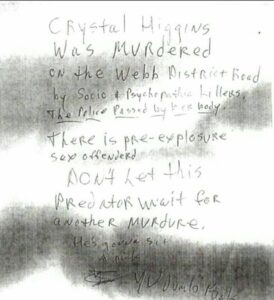 Crystal Higgins
Was MURdered
on the Webb District Road
by Socio & Psychopathic killers.
The Police Passed by her body.
There is pre-explosure
sex offenderd
DON't Let this
PReDatoR wait for
another MURdure.
He's gonna